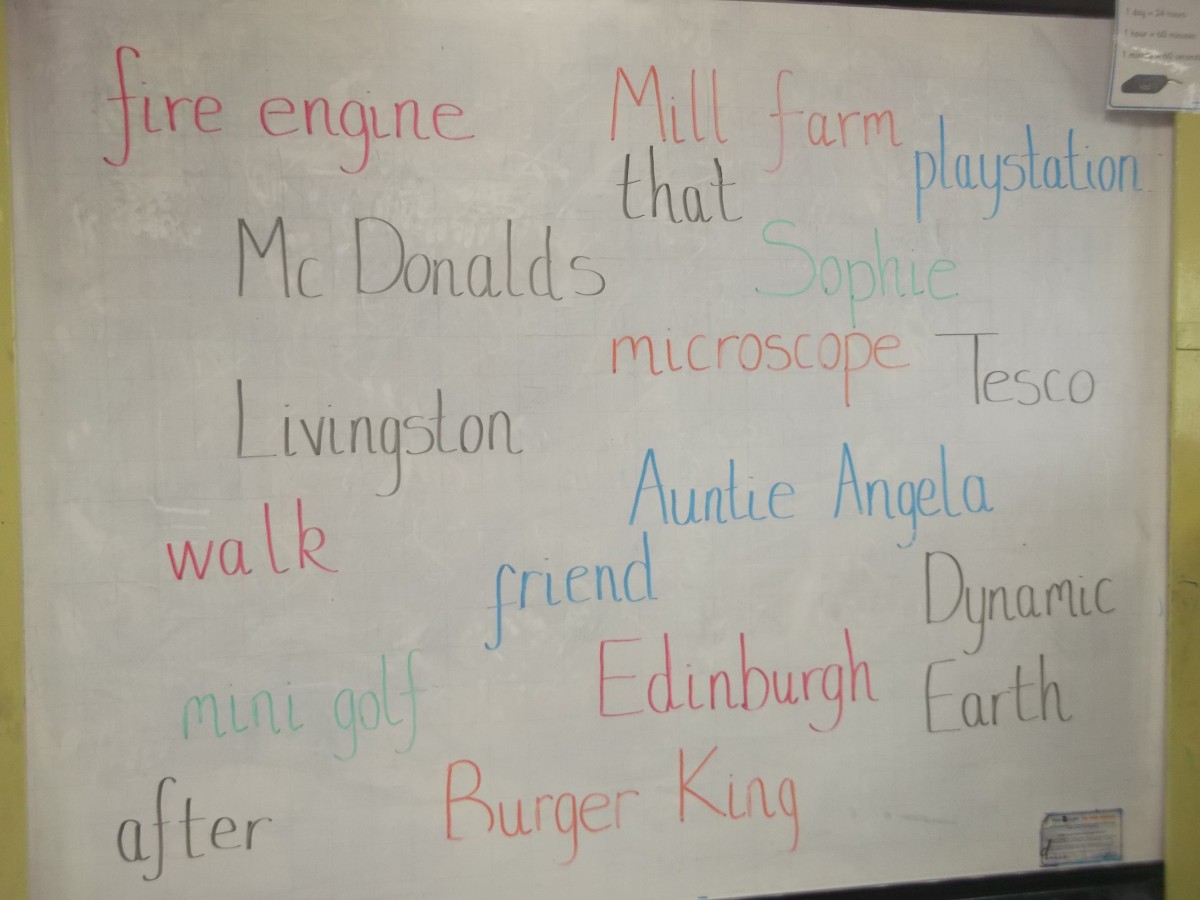 fire engine
Mill farm
that
playstation
Mc Donalds
Sophie
microscope
Tesco
Livingston
Auntie Angela
walk
friend
Dynamic
Earth
Edinburgh
mini golf
Burger King
after
1 day = 24 hours
1 hour = 60 minutes